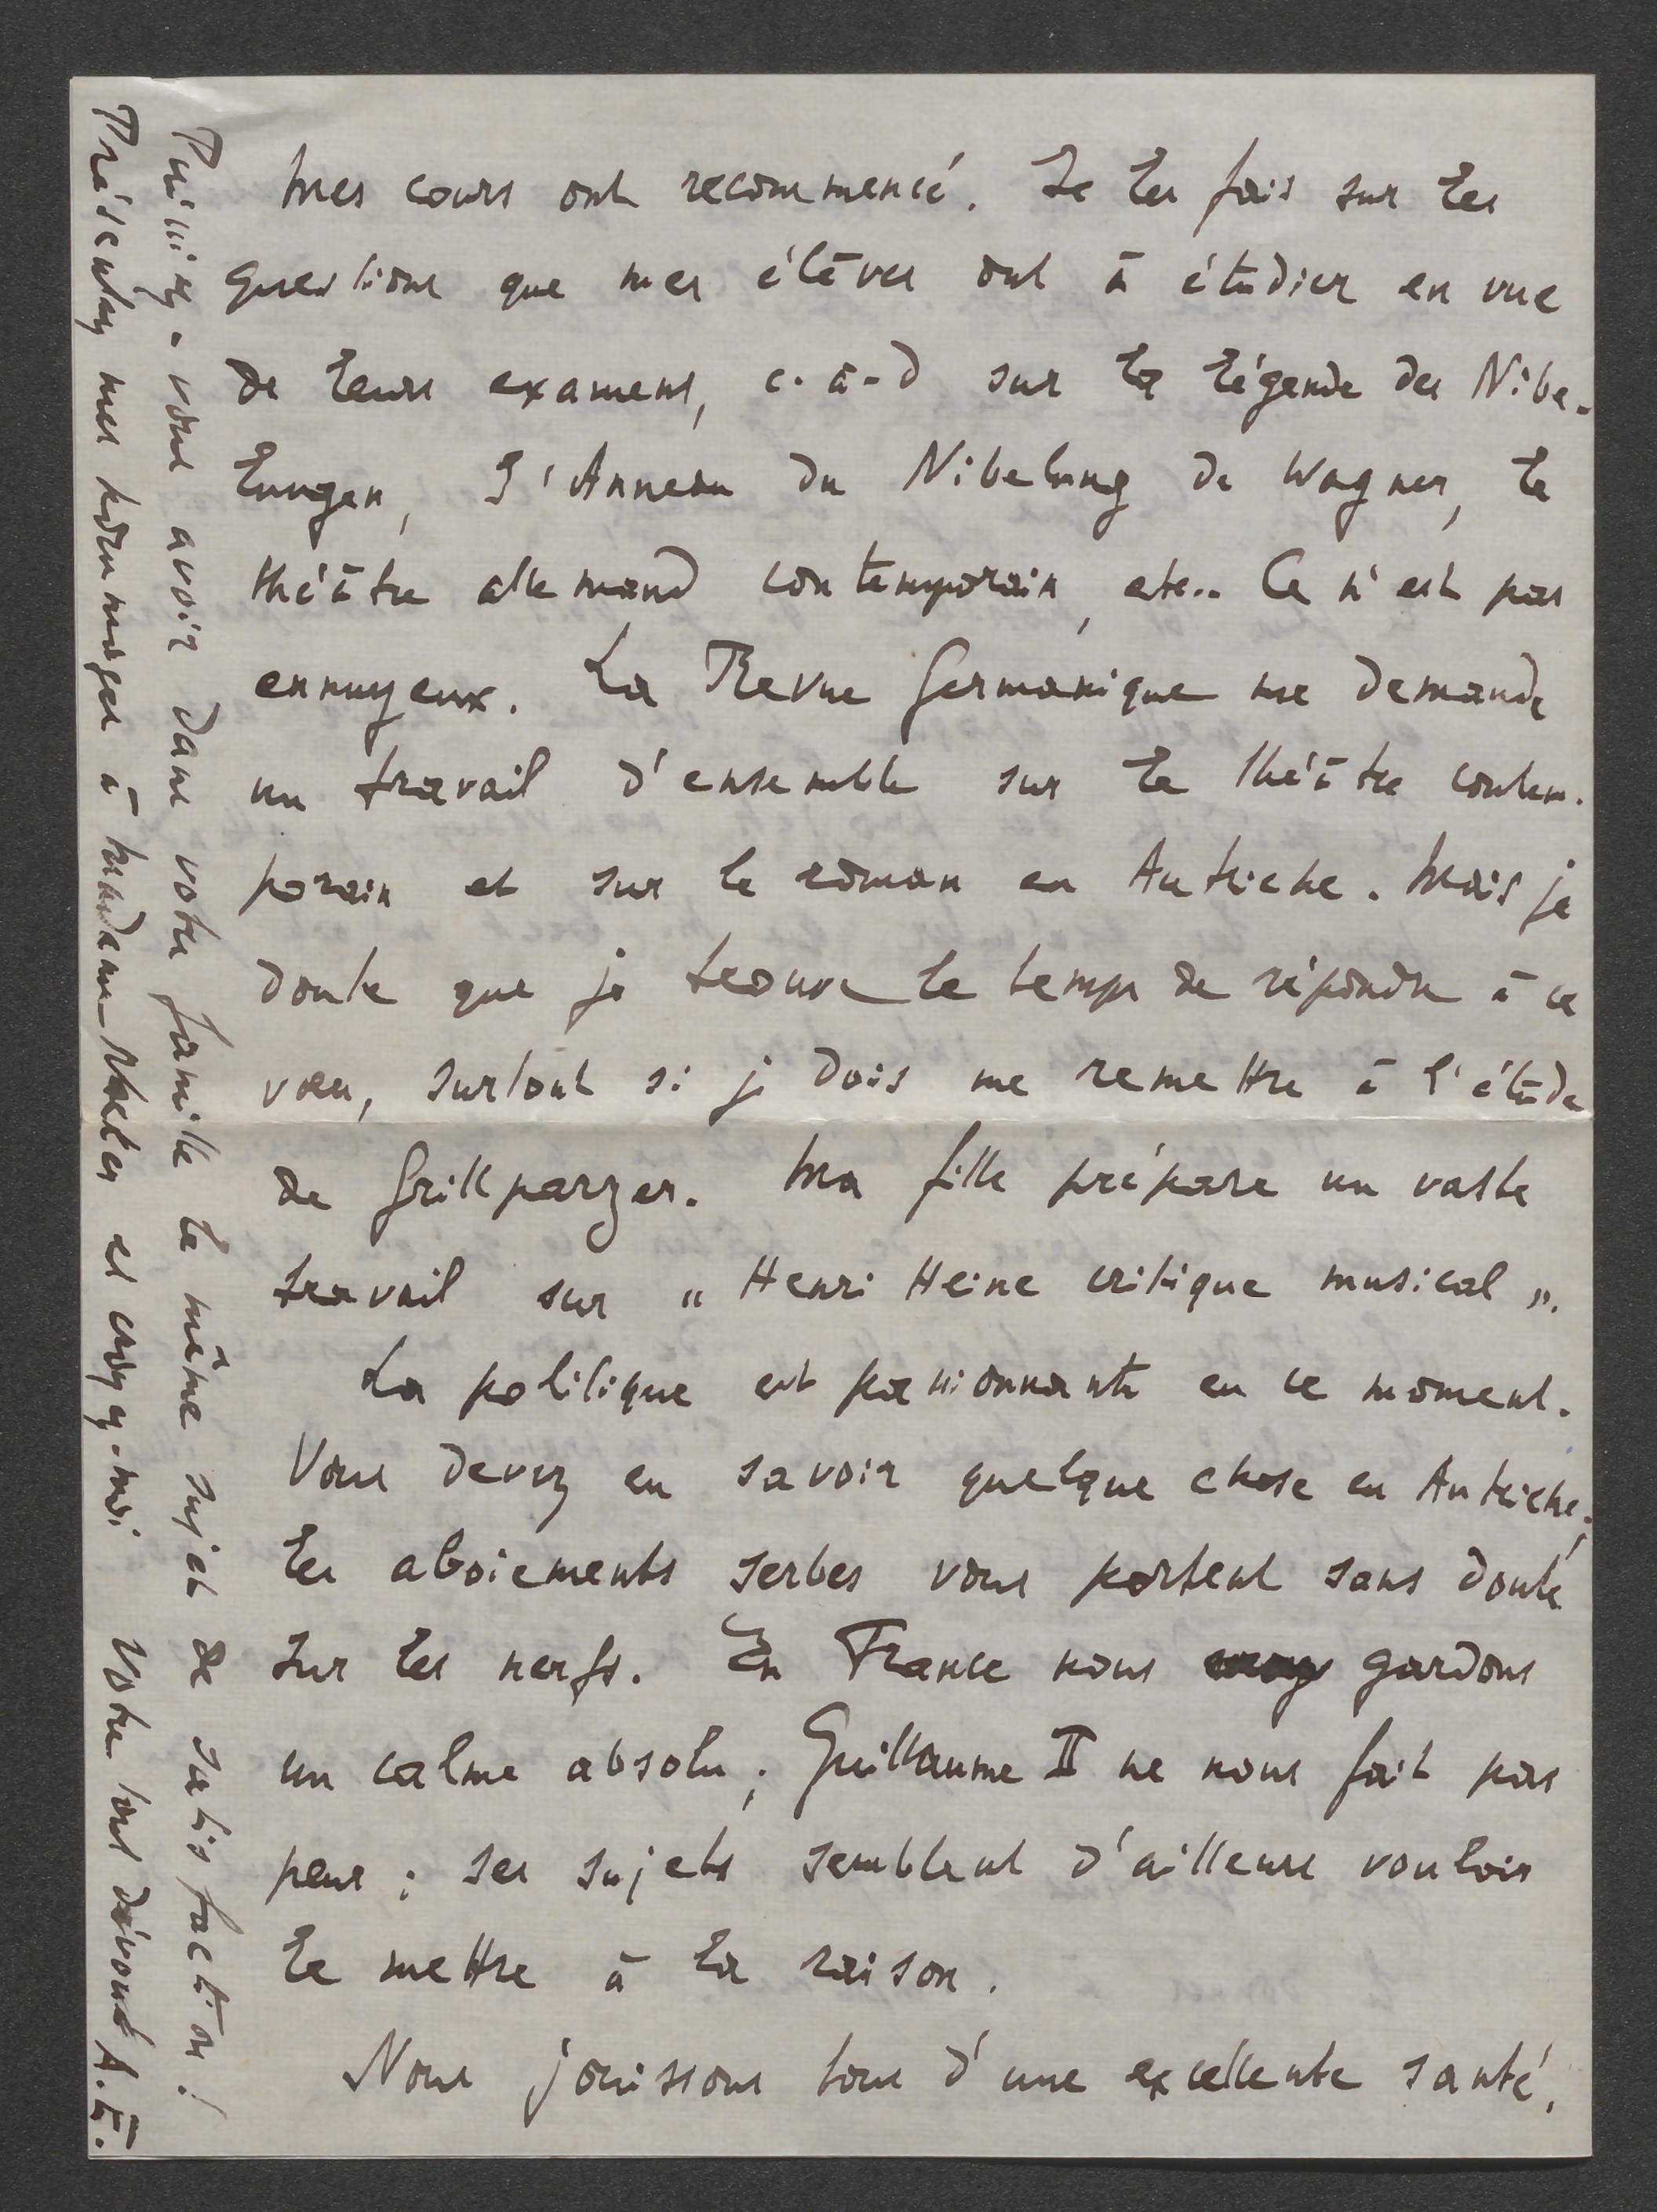 Mes cours ont recommencé. Je les fais sur les
questions que mes élèves ont à étudier en vue
de leurs examens, c.-à-d sur la légende des Nibe-
lungen, l'Anneau du Nibelung de Wagner, le
théâtre allemand contemporain, etc.. Ce n'est pas
ennuyeux. La Revue Germanique me demande
un travail d'ensemble sur le théâtre contem-
porain et sur le roman en Autriche. Mais je
doute que je trouve le temps de répondre à ce
vœu, surtout si je dois me remettre à l'étude
de Grillparzer. Ma fille prépare un vaste
travail sur „Henri Heine critique musical".
La politique est passionnante en ce moment.
Vous devez en savoir quelque chose en Autriche;
les aboiements serbes vous portent sans doute
sur les nerfs. En France nous gardons
un calme absolu; Guillaume II ne nous fait pas
peur; ses sujets semblent d'ailleurs vouloir
le mettre à la raison.
Nous jouissons tous d'une excellente santé.
Puissiez-vous avoir dans votre famille le même sujet de satisfaction!
Présentez mes hommages à Madame Necker et croyez-moi Votre tout dévoué A.E.